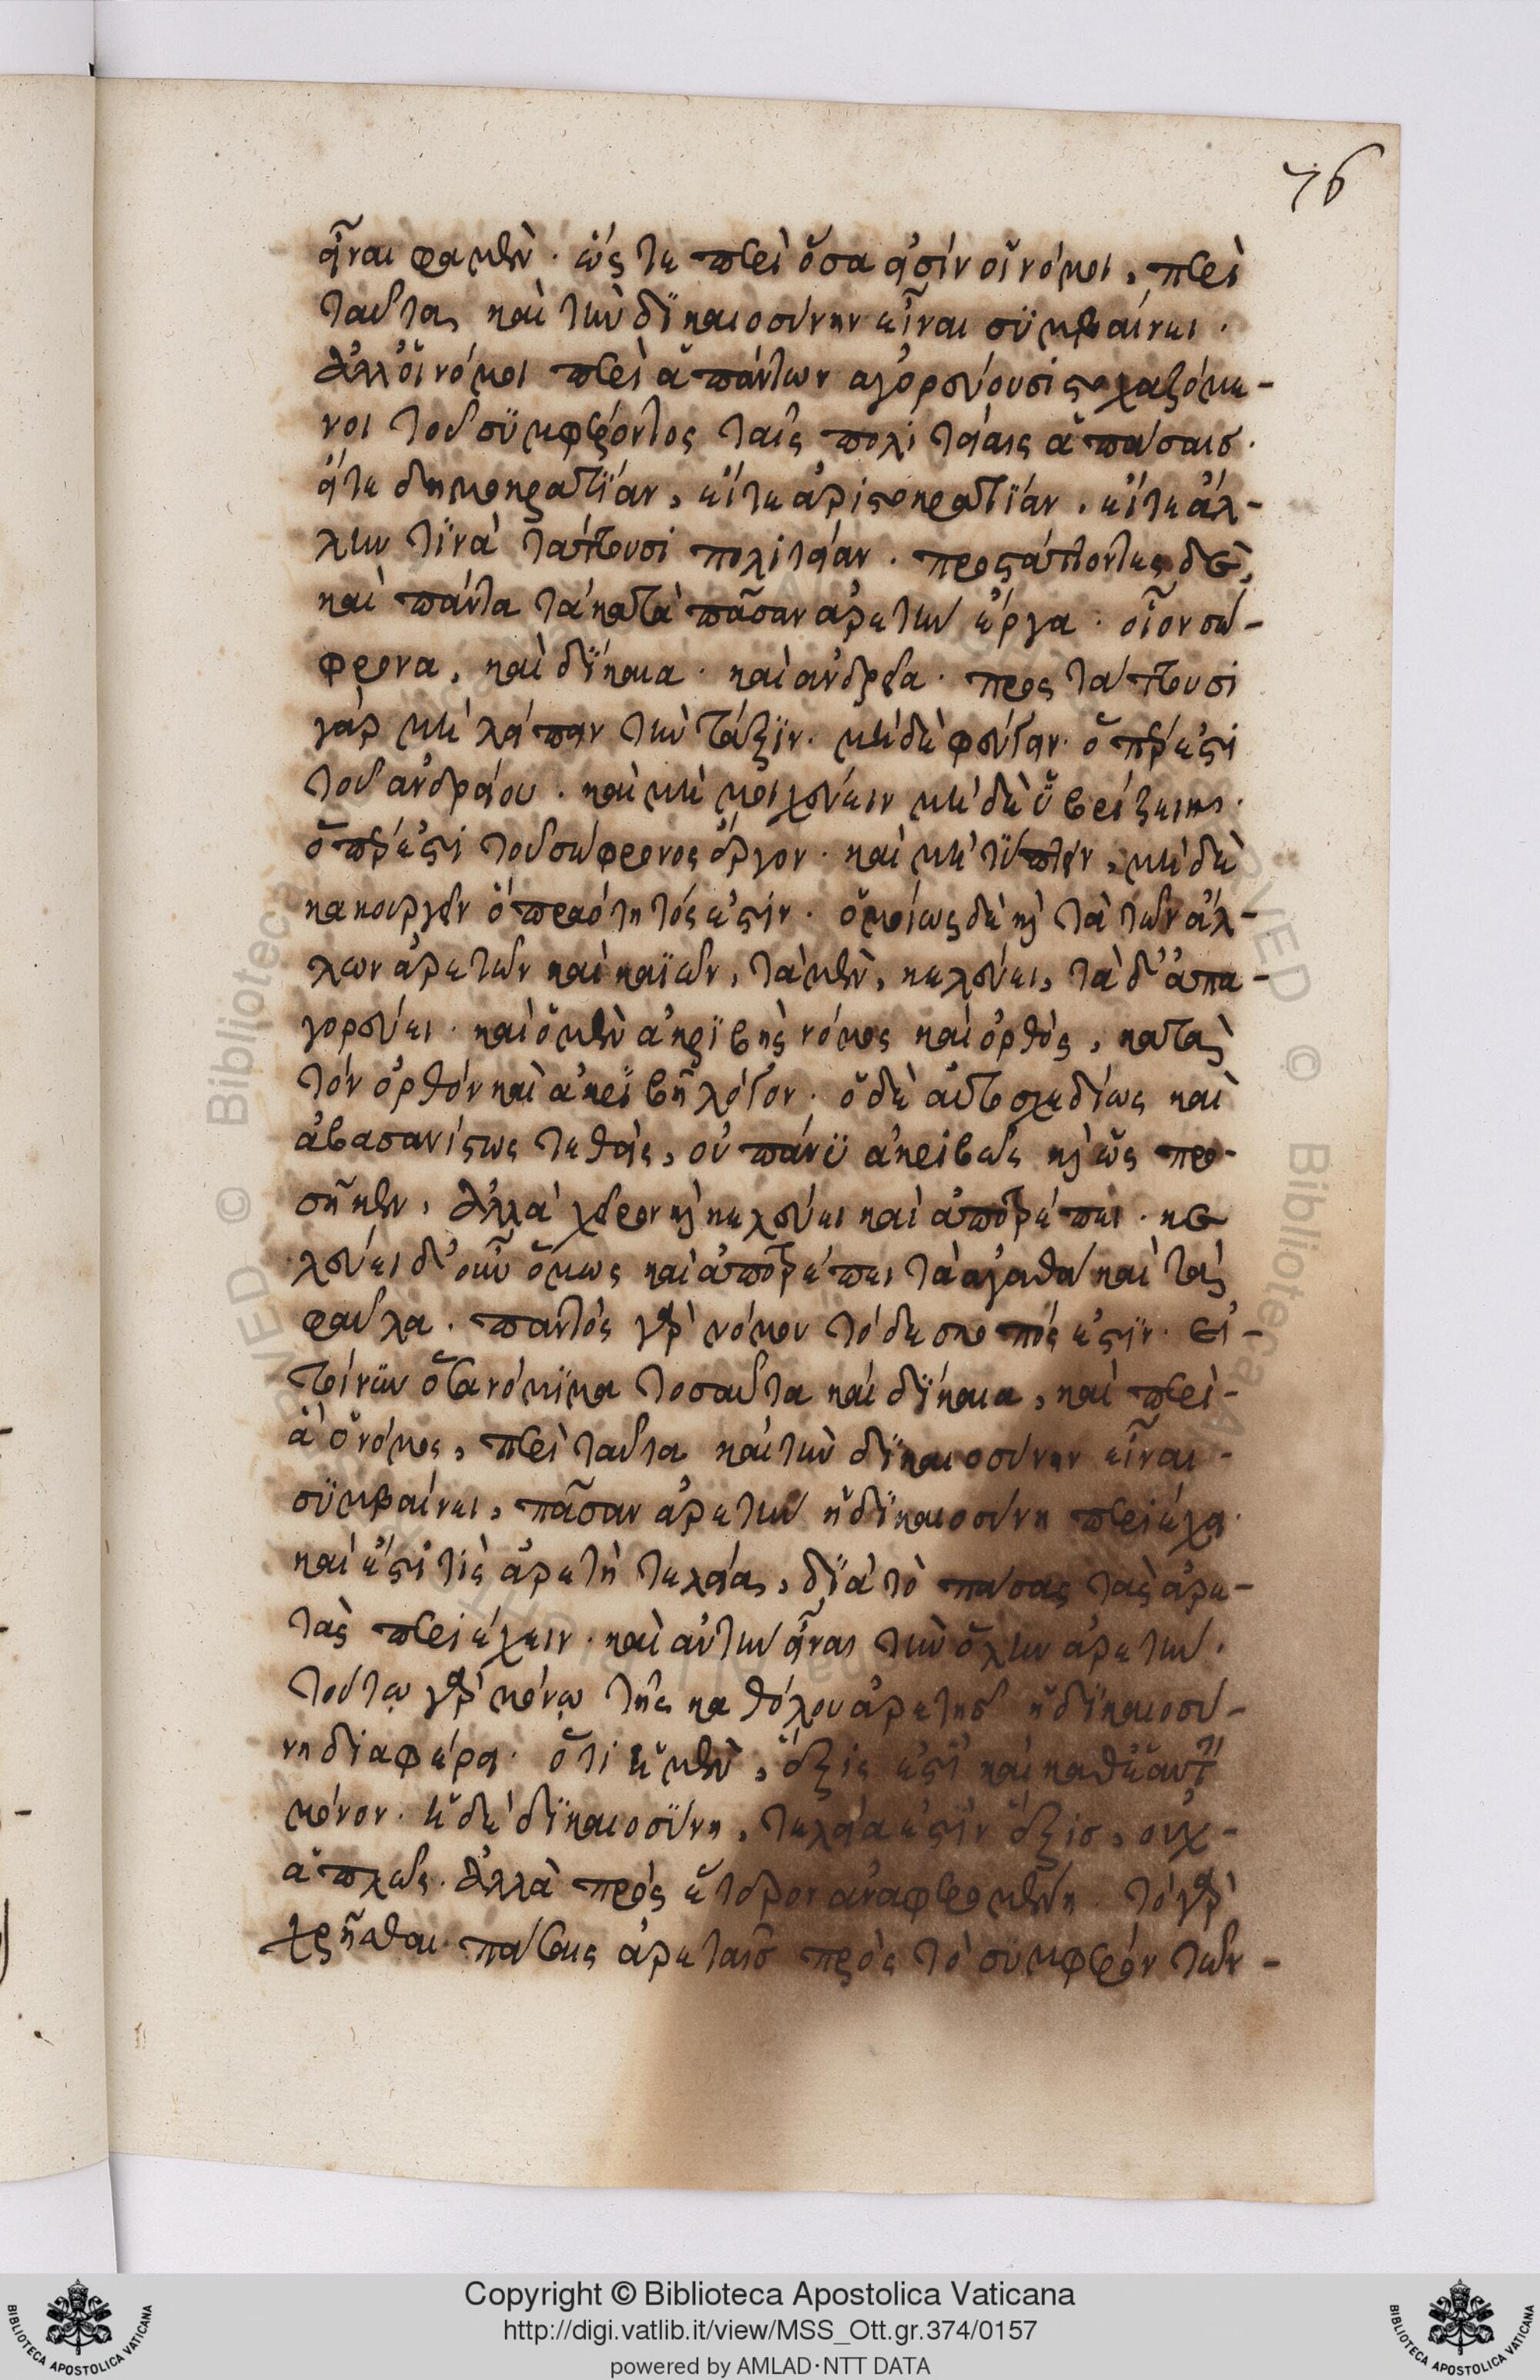 76
εἶναι φαμὲν. ὥς τε περὶ ὅσα εἰσίν οἱ νόμοι, περὶ
ταῦτα καὶ τὴν δϊκαιοσύνην εἶναι σϋμβαίνει.
ἀλλ' οἱ νόμοι περὶ ἁπάντων ἀγορεύουσι στοχαζόμε-
νοι τοῦ σϋμφέροντος ταῖς πολιτείαις ἁπάσαις.
εἴτε δημοκρατΐαν, εἴτε ἀριστοκρατΐαν, εἴτε ἄλ-
λην τϊνὰ τάττουσι πολιτείαν. προςάπτοντες δὲ
καὶ πάντα τὰ κατὰ πᾶσαν ἀρετὴν ἔργα. οἷον σώ-
φρονα, καὶ δΐκαια. καὶ ἀνδρεῖα. προςτάττουσι
γὰρ μὴ λείπειν τὴν τάξϊν. μὴ δὲ φεύγειν. ὅπέρ ἐστι
τοῦ ἀνδρείου. καὶ μὴ μοιχεύειν μὴ δὲ ὑβρίζειν.
ὅπέρ ἐστι τοῦ σώφρονος ἔργον. καὶ μὴ τΰπτειν, μὴ δὲ
κακουργεῖν ὃ πραότητός ἐστιν. ὁμοίως δὲ καὶ τὰ τῶν ἄλ-
λων ἀρετῶν καὶ κακϊῶν, τὰ μὲν, κελεύει, τὰ δ' ἀπα-
γορεύει. καὶ ὁ μὲν ἀκρϊβὴς νόμος καὶ ὀρθὸς, κατὰ
τὸν ὀρθὸν καὶ ἀκρϊβῆ λόγον. ὁ δὲ αὐτοσχεδίως καὶ
ἀβασανίστως τεθεὶς, οὐ πάνϋ ἀκριβῶς καὶ ὡς προ-
σῆκεν, ἀλλὰ χεῖρον καὶ κελεύει καὶ ἀποτρέπει. κε
λεύει δ' οὖν ὅμως καὶ ἀποτρέπει τὰ ἀγαθὰ καὶ τὰ
φαῦλα. παντὸς γὰρ νόμου τόδε σκοπός ἐστϊν. εἰ
τοίνϋν ὅσα νόμϊμα τοσαῦτα καὶ δΐκαια, καὶ περὶ-
ἃ ὁ νόμος, περὶ ταῦτα καὶ τὴν δϊκαιοσύνην εἶναι-
σϋμβαίνει, πᾶσαν ἀρετὴν ἡ δϊκαιοσύνη περιέχει.
καὶ ἔστί τις ἀρετὴ τελεία, δϊὰ τὸ πάσας τὰς ἀρε-
τὰς περιέχειν. καὶ αὐτὴν εἶναι τὴν ὅλην ἀρετὴν.
τούτῳ γὰρ μόνῳ τῆς καθόλου ἀρετῆς ἡ δϊκαιοσύ-
νη διαφέρει. ὅτι ἡ μὲν, ἕξις ἐστὶ καὶ καθ' ἑαυτὴν
μόνον. ἡ δὲ δϊκαιοσΰνη, τελεία ἐστϊν ἕξις, οὐχ-
ἁπλῶς. ἀλλὰ πρὸς ἕτερον ἀναφερομένη. τὸ γὰρ
χρῆσθαι πάσαις ἀρεταῖς πρὸς τὸ σϋμφέρον τῶν-
Copyright © Biblioteca Apostolica Vaticana
http://digi.vatlib.it/view/MSS_Ott.gr.374/0157
powered by AMLAD·NTT DATA
BIBLIOTECA APOSTOLICA VATICANA
BIBLIOTECA APOSTOLICA VATICANA